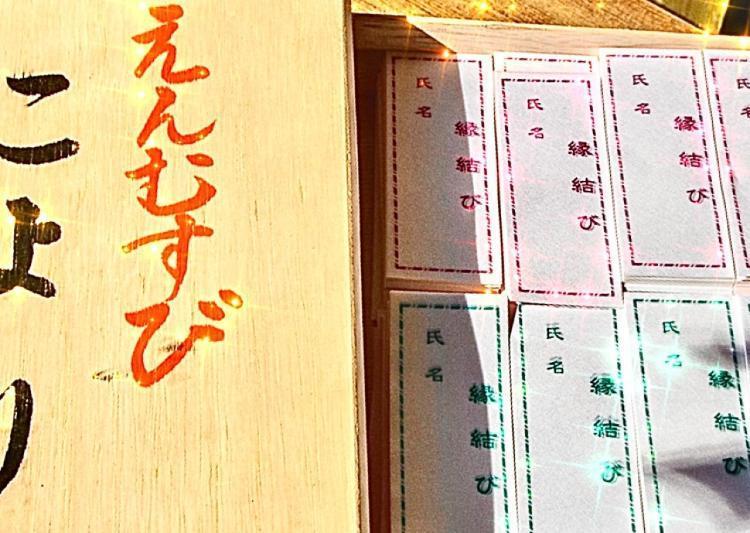 えんむすび
こより
縁結び
氏名
縁結び
氏名
縁結び
氏名
氏名
縁結び
氏名
縁結び
氏名
縁結び
氏名